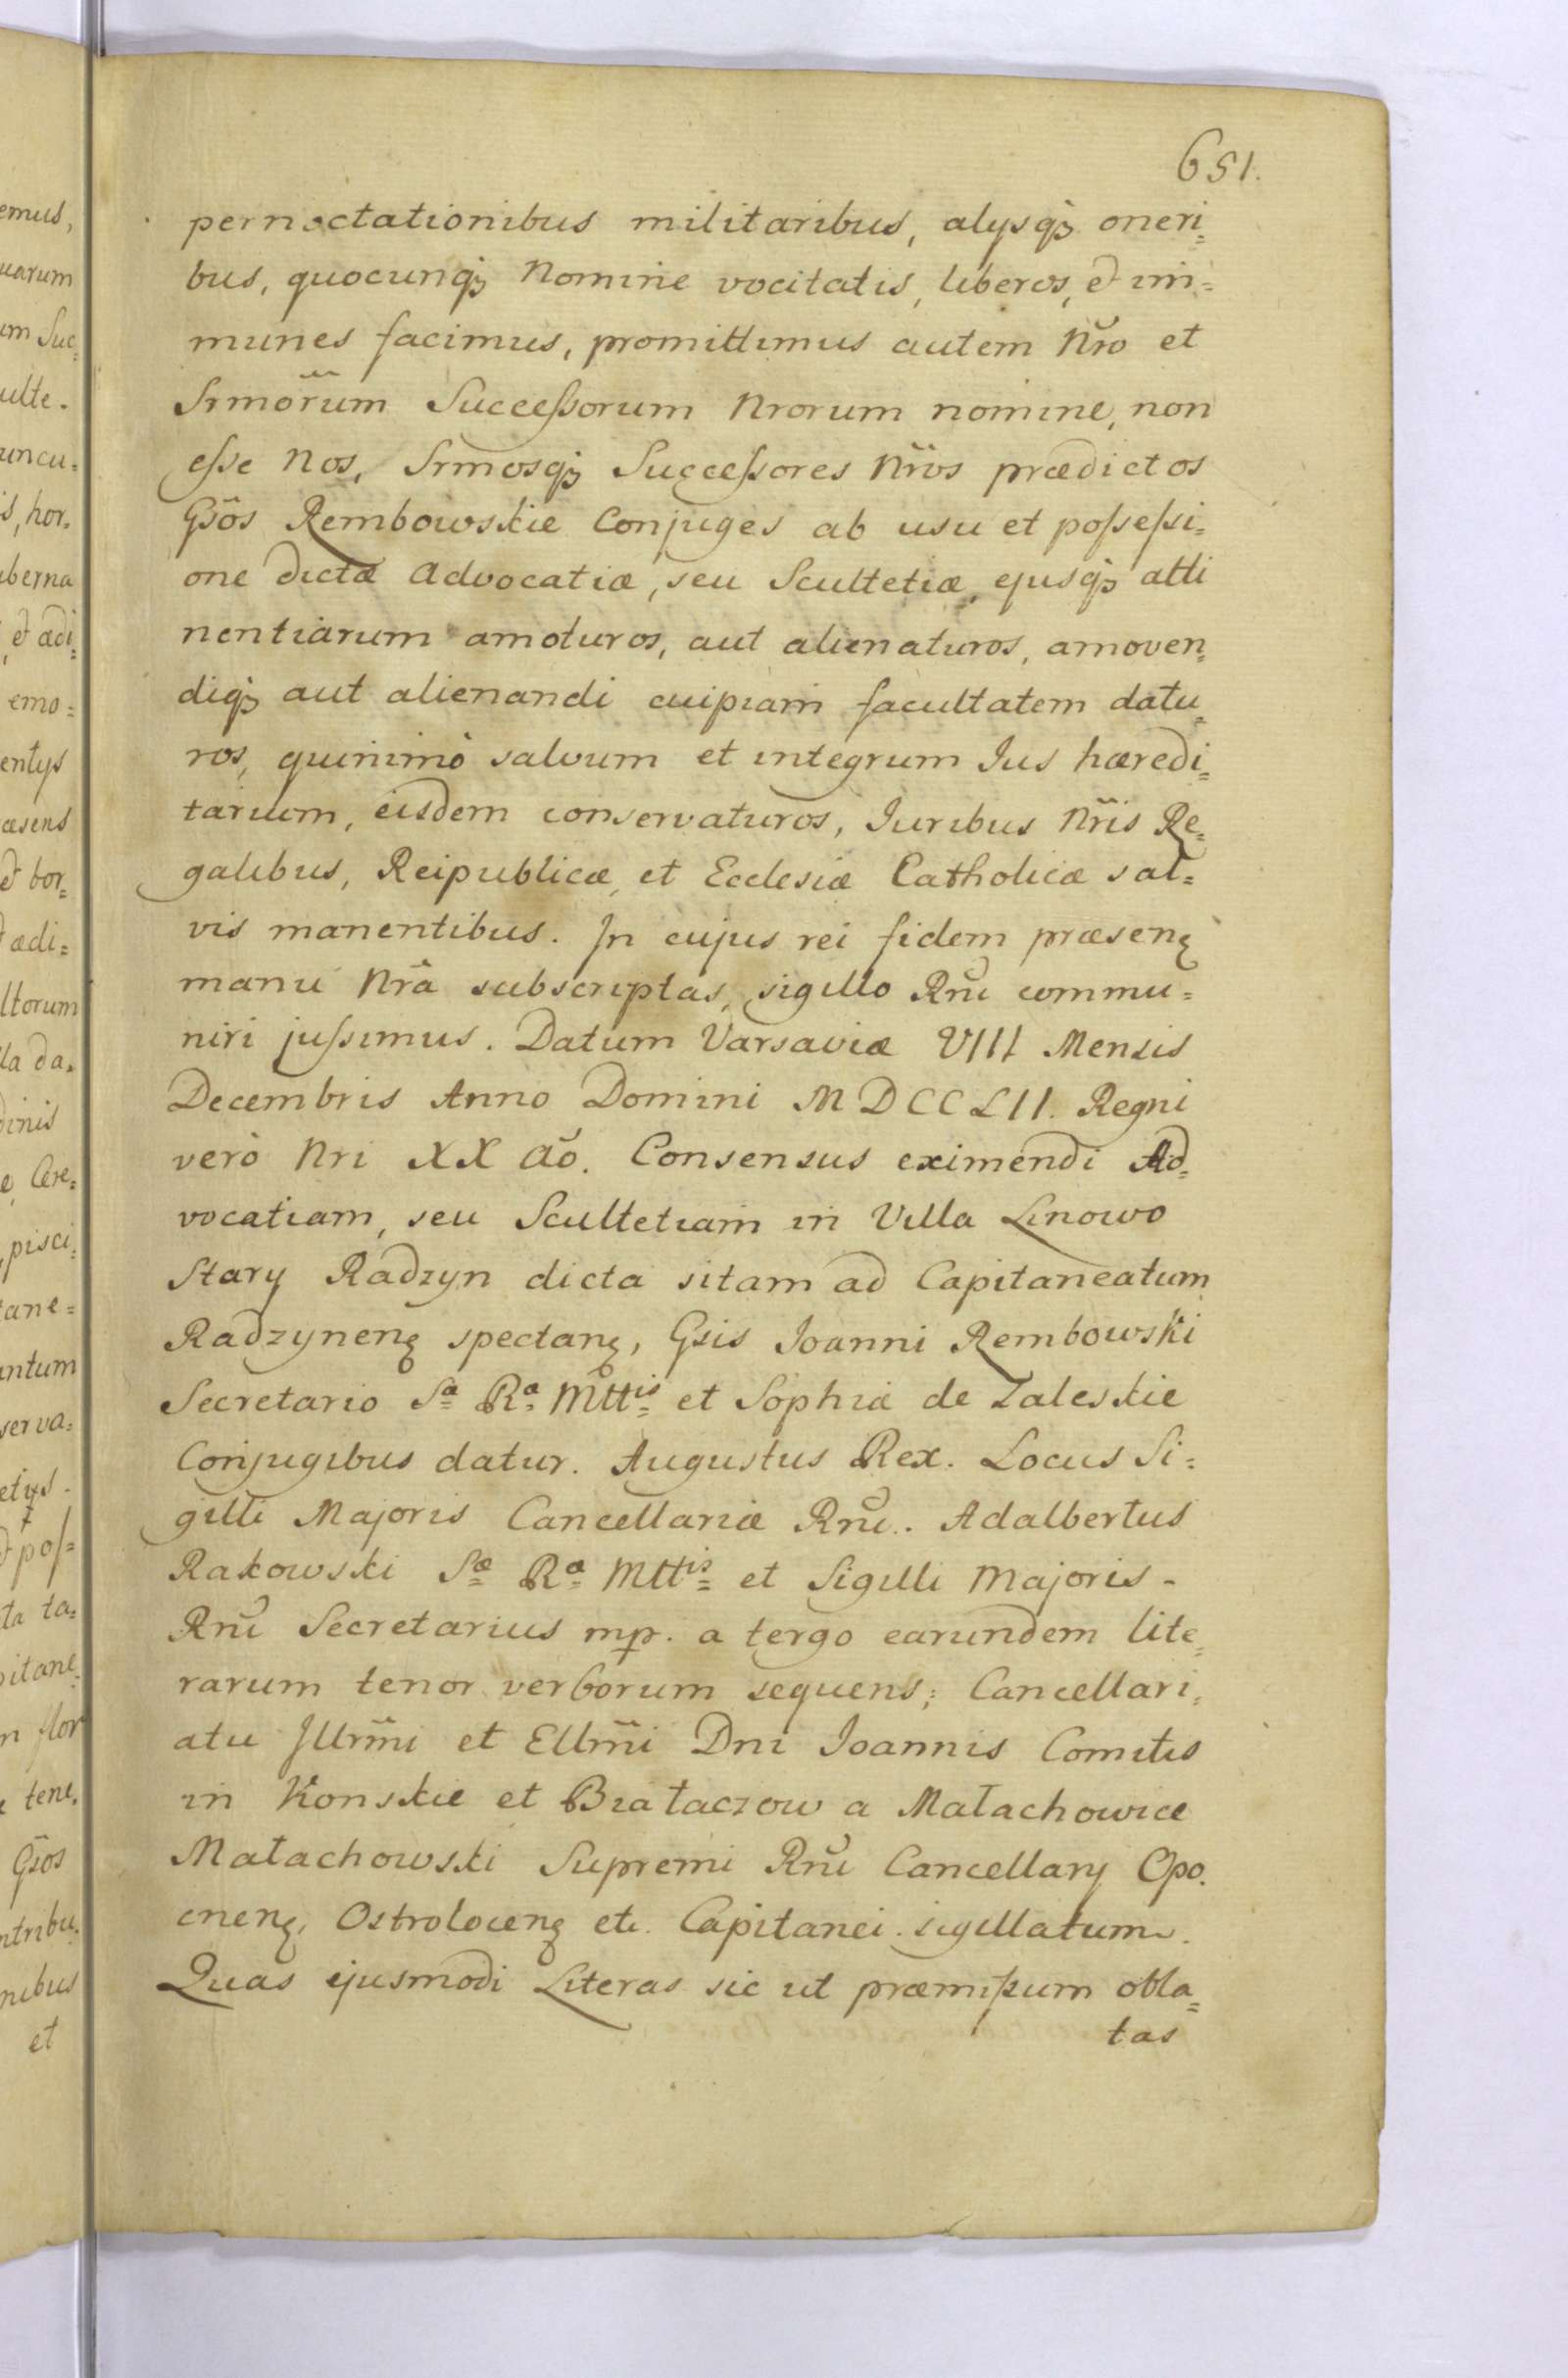 651.
pernoctationibus militaribus, alysq₃ oneri=
bus, quocunq₃ Nomine vocitatis, liberos, et im=
munes facimus, promittimus autem Nr̃o et
Srmõrum Succeſsorum Nrorum nomine, non
eſse Nos, Srmosq₃ Succeſsores Nr̃os prædictos
Gsõs Rembowskie Conjuges ab usu et poſseſsi=
one dictæ Advocatiæ, seu Scultetiæ, ejusq₃ atti
nentiarum amoturos, aut alienaturos, amoven=
diq₃ aut alienandi cuipiam facultatem datu=
ros, quinimò salvum et integrum Jus hæredi=
tarium, eisdem conservaturos, Juribus Nr̃is Re=
galibus, Reipublicæ, et Ecclesiæ Catholicæ sal=
vis manentibus. In cujus rei fidem præsenȩ
manu Nr̃a subscriptas, sigillo Rnĩ commu=
niri juſsimus. Datum Varsaviæ VIII Mensis
Decembris Anno Domini MDCCLII. Regni
verò Nri XX aõ. Consensus eximendi Ad=
vocatiam, seu Scultetiam in Villa Linowo
Stary Radzyn dicta sitam ad Capitaneatum
Radzynenȩ spectanȩ, Gsis Joanni Rembowski
Secretario Sæ Ræ Mttis et Sophiæ de Zaleskie
Conjugibus datur. Augustus Rex. Locus Si=
gilli Majoris Cancellariæ Rnĩ. Adalbertus
Rakowski Sæ Ræ Mttis et Sigilli Majoris
Rnĩ Secretarius mp. a tergo earundem lite=
rarum tenor verborum sequens; Cancellari=
atu Jllrm̃i et Ellm̃i Dni Joannis Comitis
in Konskie et Białaczow a Małachowice
Małachowski Supremi Rnĩ Cancellary Opo=
cnenȩ, Ostrolocenȩ etc. Capitanei sigillatum.
Quas ejusmodi Literas sic ut præmiſsum obla=
tas